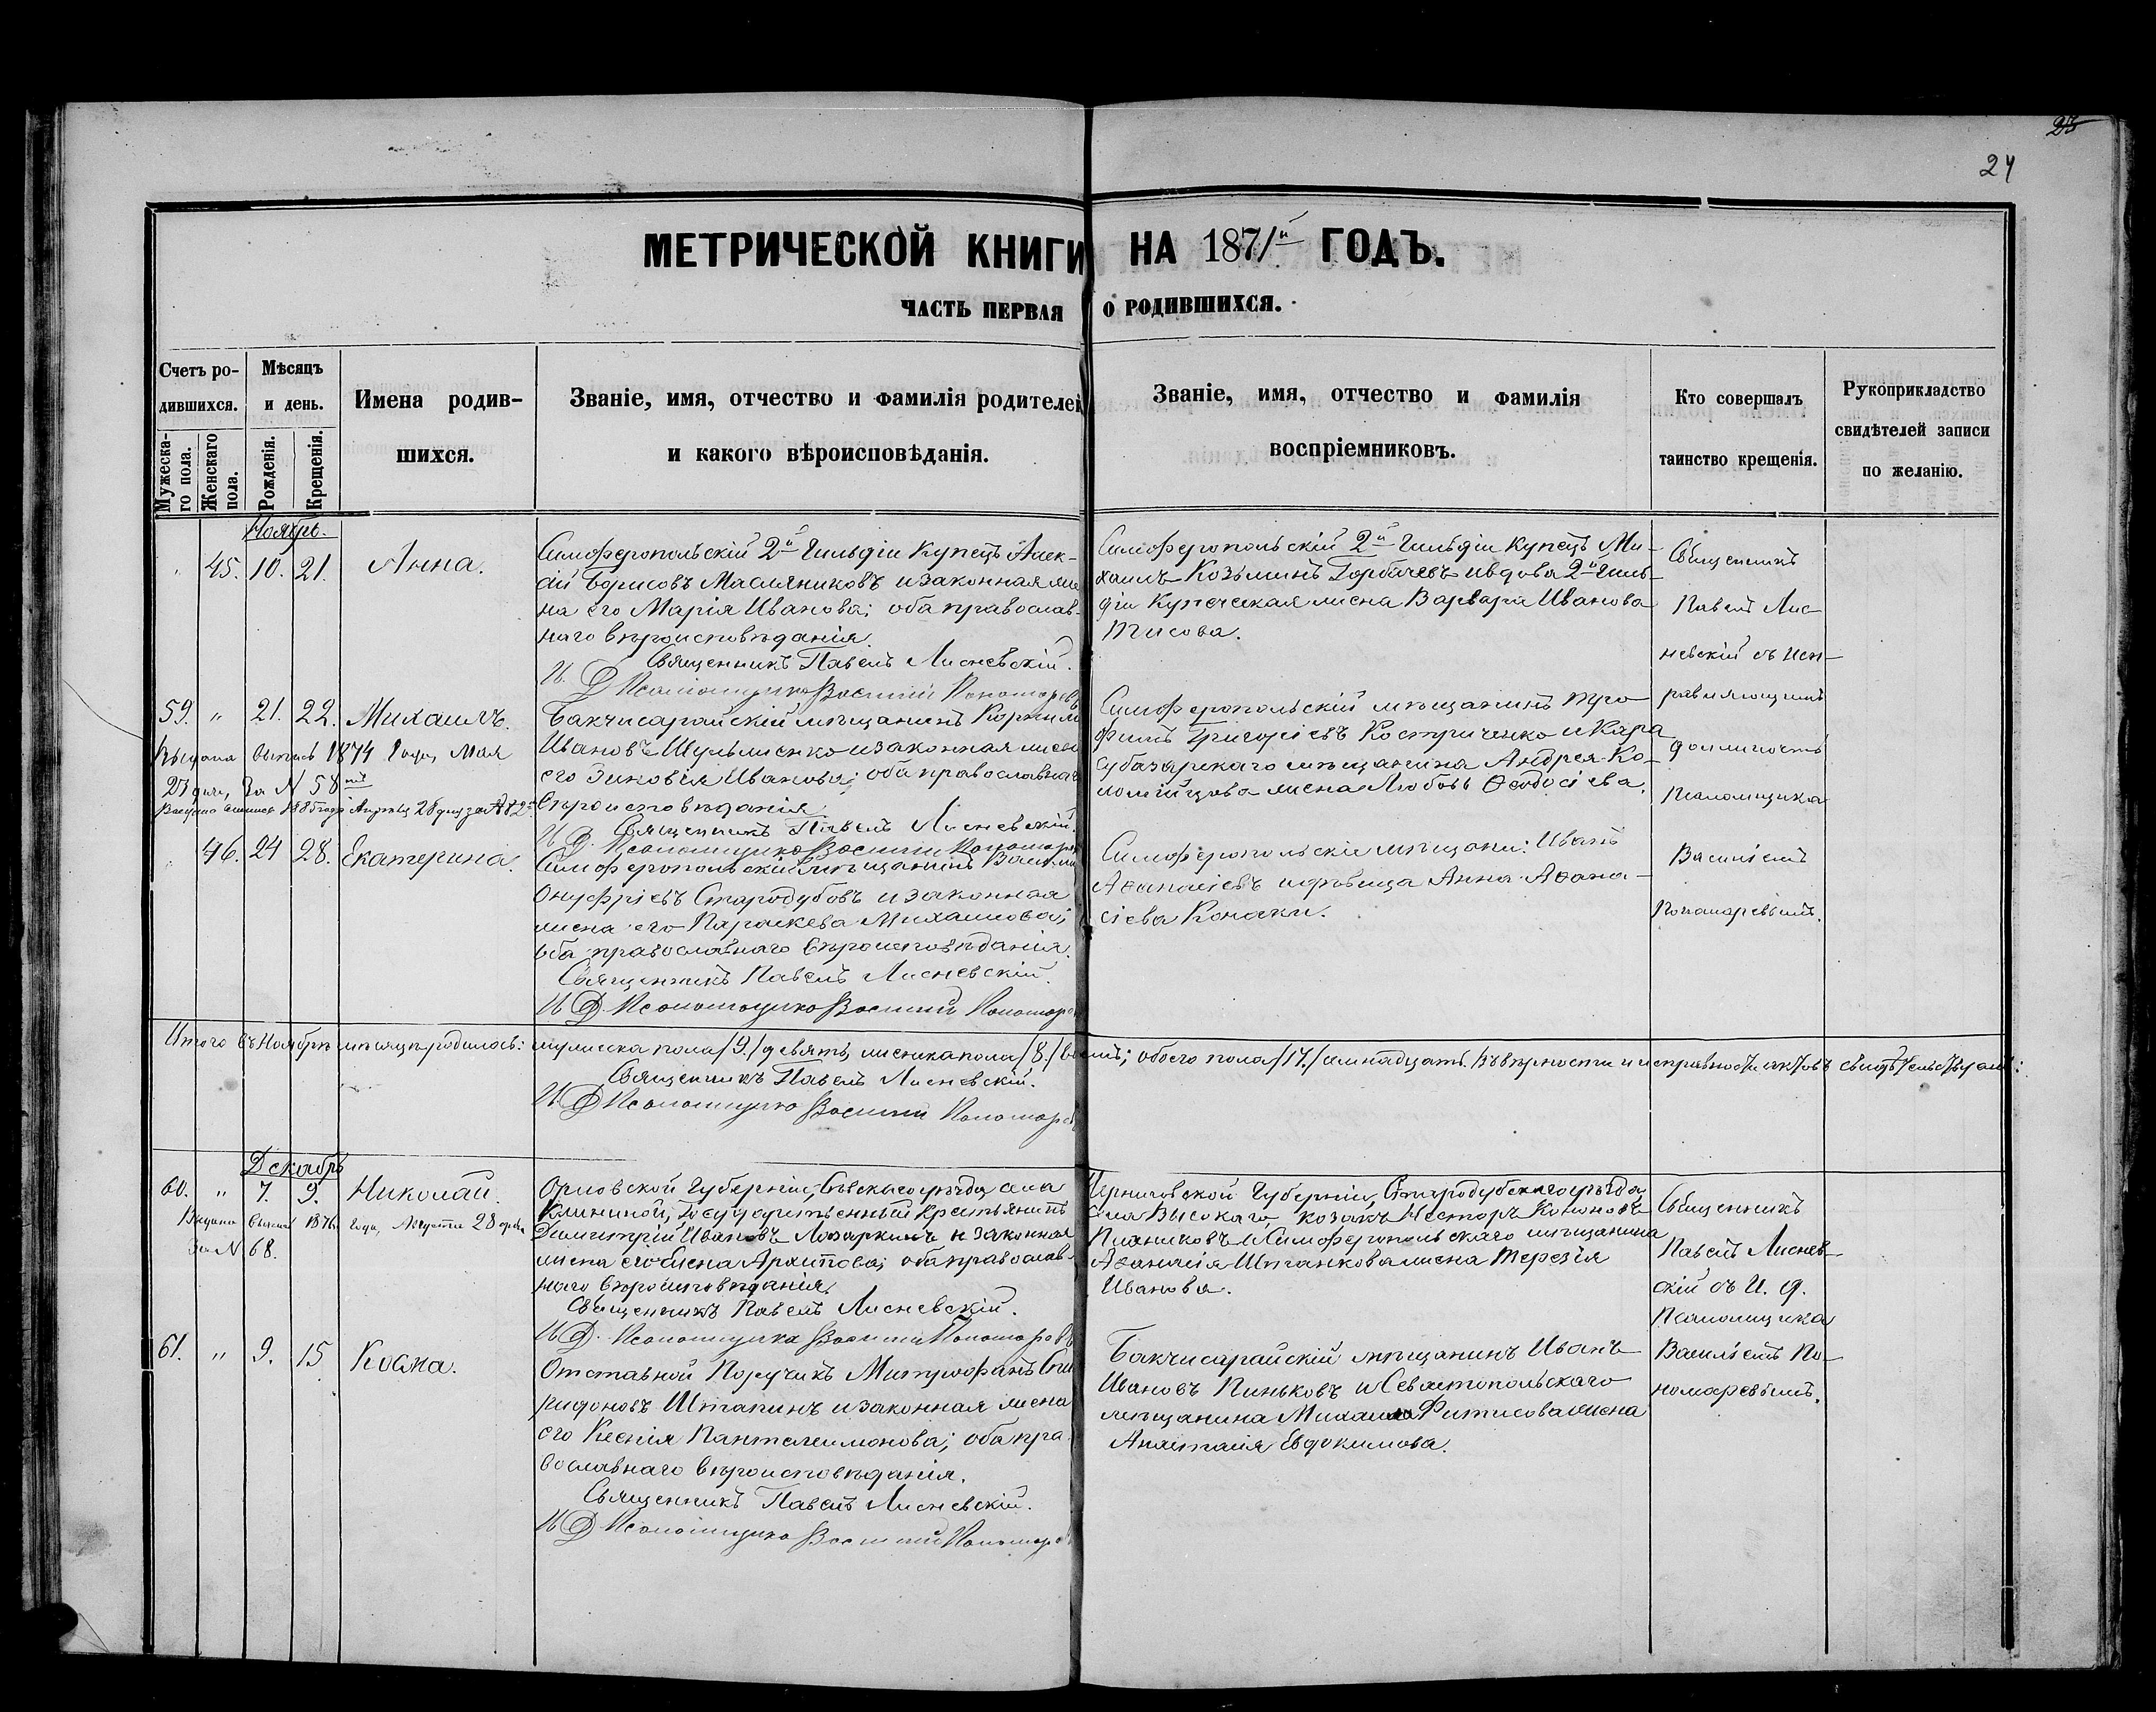 25
24
МЕТРИЧЕСКОЙ КНИГИ НА 1871й ГОДЪ.
ЧАСТЬ ПЕРВАЯ О РОДИВШИХСЯ.
Счетъ ро-
дившихся.
Мужеска-
го пола.
Женскаго
пола.
Мѣсяцъ
и день.
Рожденія.
Крещенія.
Имена родив-
шихся.
Званіе, имя, отчество и фамилія родителей
и какого вѣроисповѣданія.
Званіе, имя, отчество и фамилія
воспріемниковъ.
Кто совершалъ
таинство крещенія.
Рукоприкладство
свидѣтелей записи
по желанію.
Ноябрь.
45. 10. 21. Анна.
Симферопольскій 2й Гильдіи Купецъ Алек-
сій Борисовъ Масляниковъ и законная же
на его Марія Иванова; оба православ-
наго вѣроисповѣданія.
Священникъ Павелъ Лисневскій.
И. Д. Псаломщика Василій Пономаревъ
Симферопольскій 2й Гильдіи Купецъ Ми-
хаилъ Козьминъ Горбачевъ и вдова 2й Гиль-
діи Купеческая жена Варвара Иванова
Тисова.
Священникъ
Павелъ Лис-
невскій съ исп-
равляющимъ
должность
Псаломщика
Василіемъ
Пономаревымъ.
59. " 21. 22. Михаилъ.
Выдана выпись 1874 Года, Мая
27 дня, за N 58мъ
Выдана выпись 1885 года
Бакчисарайскій мѣщанинъ Корнилій
Ивановъ Шульженко и законная жена
его Зиновія Иванова; оба православнаго
вѣроисповѣданія
Священникъ Павелъ Лисневскій.
И. Д. Псаломщика Василій Пономаревъ
Симферопольскій мѣщанинъ Тро-
фимъ Григорьевъ Костриченко и Кара
субазарскаго мѣщанина Андрея Ко-
ломійцова жена Любовь Ѳеодосіева.
46. 24 28. Екатерина.
Симферопольскій мѣщанинъ Василій
Онуфріевъ Стародубовъ и законная
жена его Параскева Михаилова;
оба православнаго вѣроисповѣданія.
Священникъ Павелъ Лисневскій.
И. Д. Псаломщика Василій Пономарев
Симферопольскіе мѣщане: Иванъ
Аѳанасіевъ и дѣвица Анна Аѳана-
сіева Конаки.
Итого въ Ноябрѣ мѣсяцѣ родилось: мужеска пола /9./ девять, женска пола /8./ восемь; обоего пола /17./ семнадцать. Въ вѣрности и исправности актовъ свидѣтельствуемъ:
Священникъ Павелъ Лисневскій.
И. Д. Псаломщика Василій Пономарев
Декабрь
60. " 7. 9. Николай.
Выдана выпись 1876 года, Августа 28 дня,
За N 68.
Орловской Губерніи, Сѣвскаго уѣзда, села
Государственный крестьянинъ
Димитрій Ивановъ Лазаркинъ и законная
жена его Елена Архипова; оба православ-
наго вѣроисповѣданія
Священникъ Павелъ Лисневскій.
И. Д. Псаломщика Василій Пономаревъ
Черниговской Губерніи, Стародубскаго уѣзда
села Высокаго, козакъ Несторъ Кононовъ
Пианиковъ и Симферопольскаго мѣщанина
Аѳанасія Штанкова жена Терезія
Иванова.
Священникъ
Павелъ Лиснев-
скій съ И. д.
Псаломщика
Василіемъ По-
номаревымъ.
61. " 9. 15 Косма.
Отставной Поручикъ Митрофанъ Спи
ридоновъ Штапинъ и законная жена
его Ксенія Пантелеимонова; оба пра-
вославнаго вѣроисповѣданія.
Священникъ Павелъ Лисневскій.
И. Д. Псаломщика Василій Пономарев
Бакчисарайскій мѣщанинъ Иванъ
Ивановъ Пиньковъ и Севастопольскаго
мѣщанина Михаила Фитисова жена
Анастасія Евдокимова.